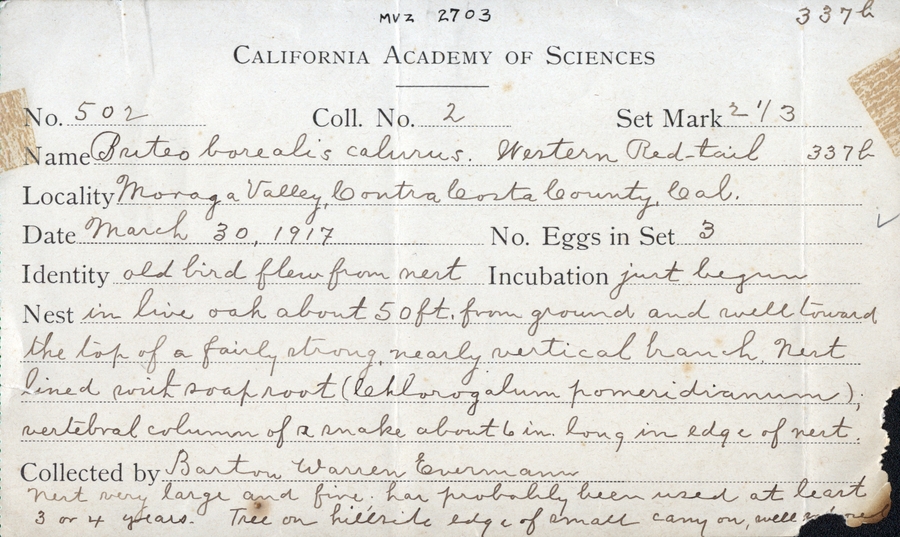 MVZ 2703 337b
CALIFORNIA ACADEMY OF SCIENCES
No. 502 Coll. No. 2 Set Mark 2 1/3
Name Buteo borealis calurus. Western Red-tail 337b
Locality Moraga Valley, Contra Costa County, Cal.
Date March 30, 1917 No. Eggs in Set 3
Identity old bird flew from nest Incubation just begun
Nest in live oak about 50 ft. from ground and well toward
the top of a fairly strong, nearly vertical branch. Nest
lined with soaproot (Chlorogalum pomeridianum);
vertebral column of a snake about 6 in. long in edge of nest.
Collected by Barton Warren Evermann
Nest very large and fine. has probably been used at least
3 or 4 years. Tree on hillside edge of small canyon, well